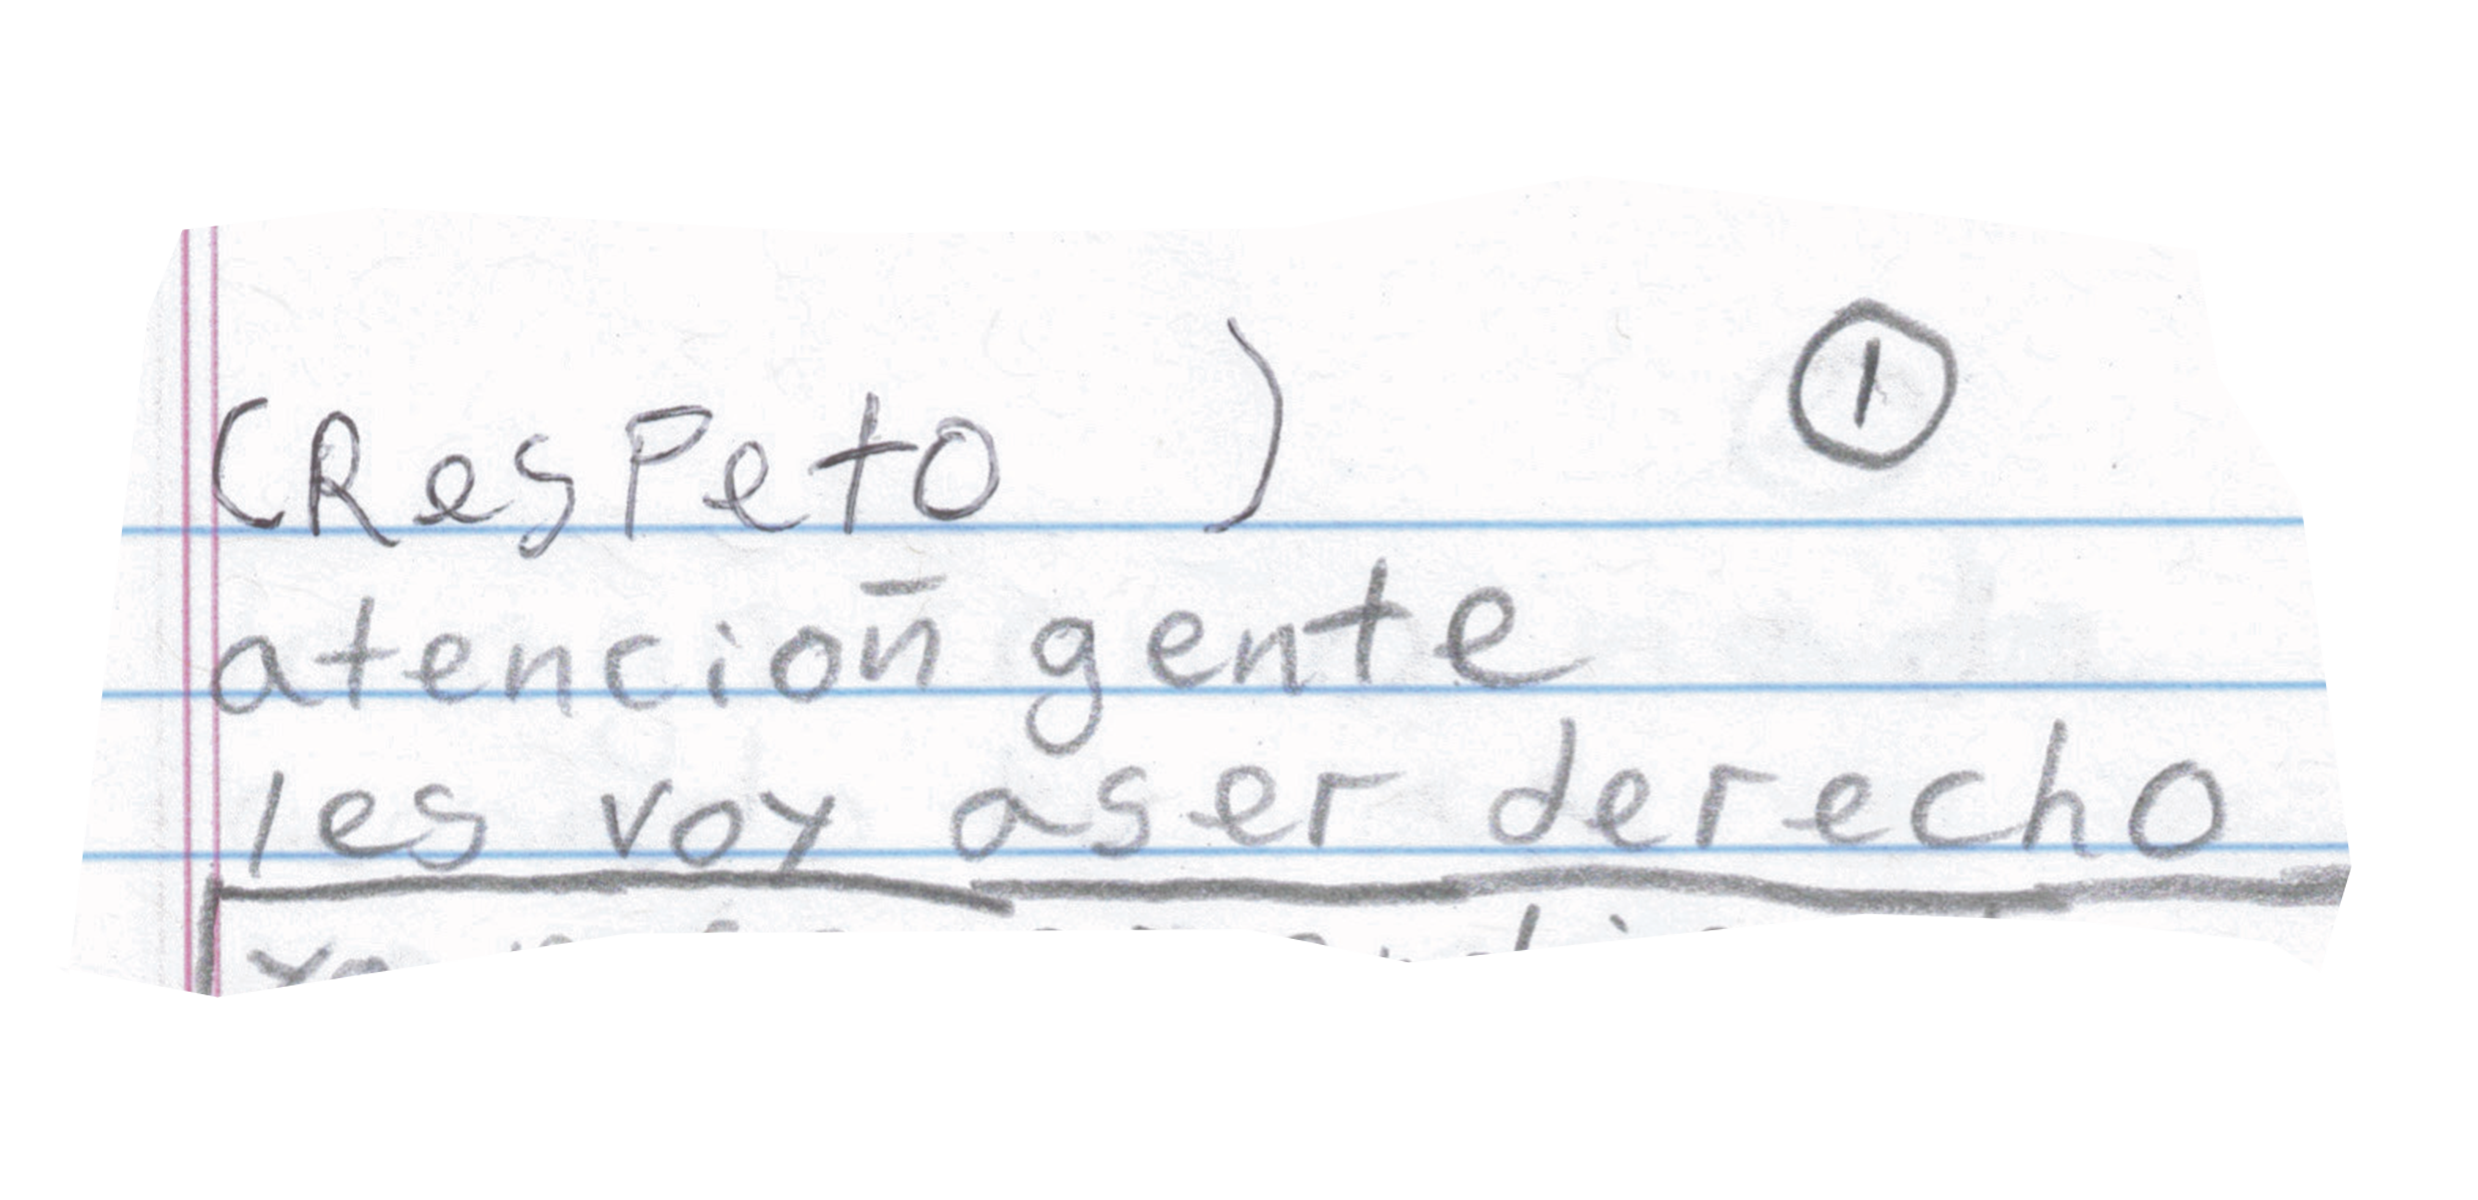 (Respeto ) 1
atencion̄ gente
les voy aser derecho